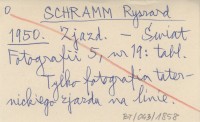 SCHRAMM Ryszard
1950. Zjazd. – Świat
Fotografii 5, nr 19: tabl.
Tylko fotografia tater-
nickiego zjazdu na linie.